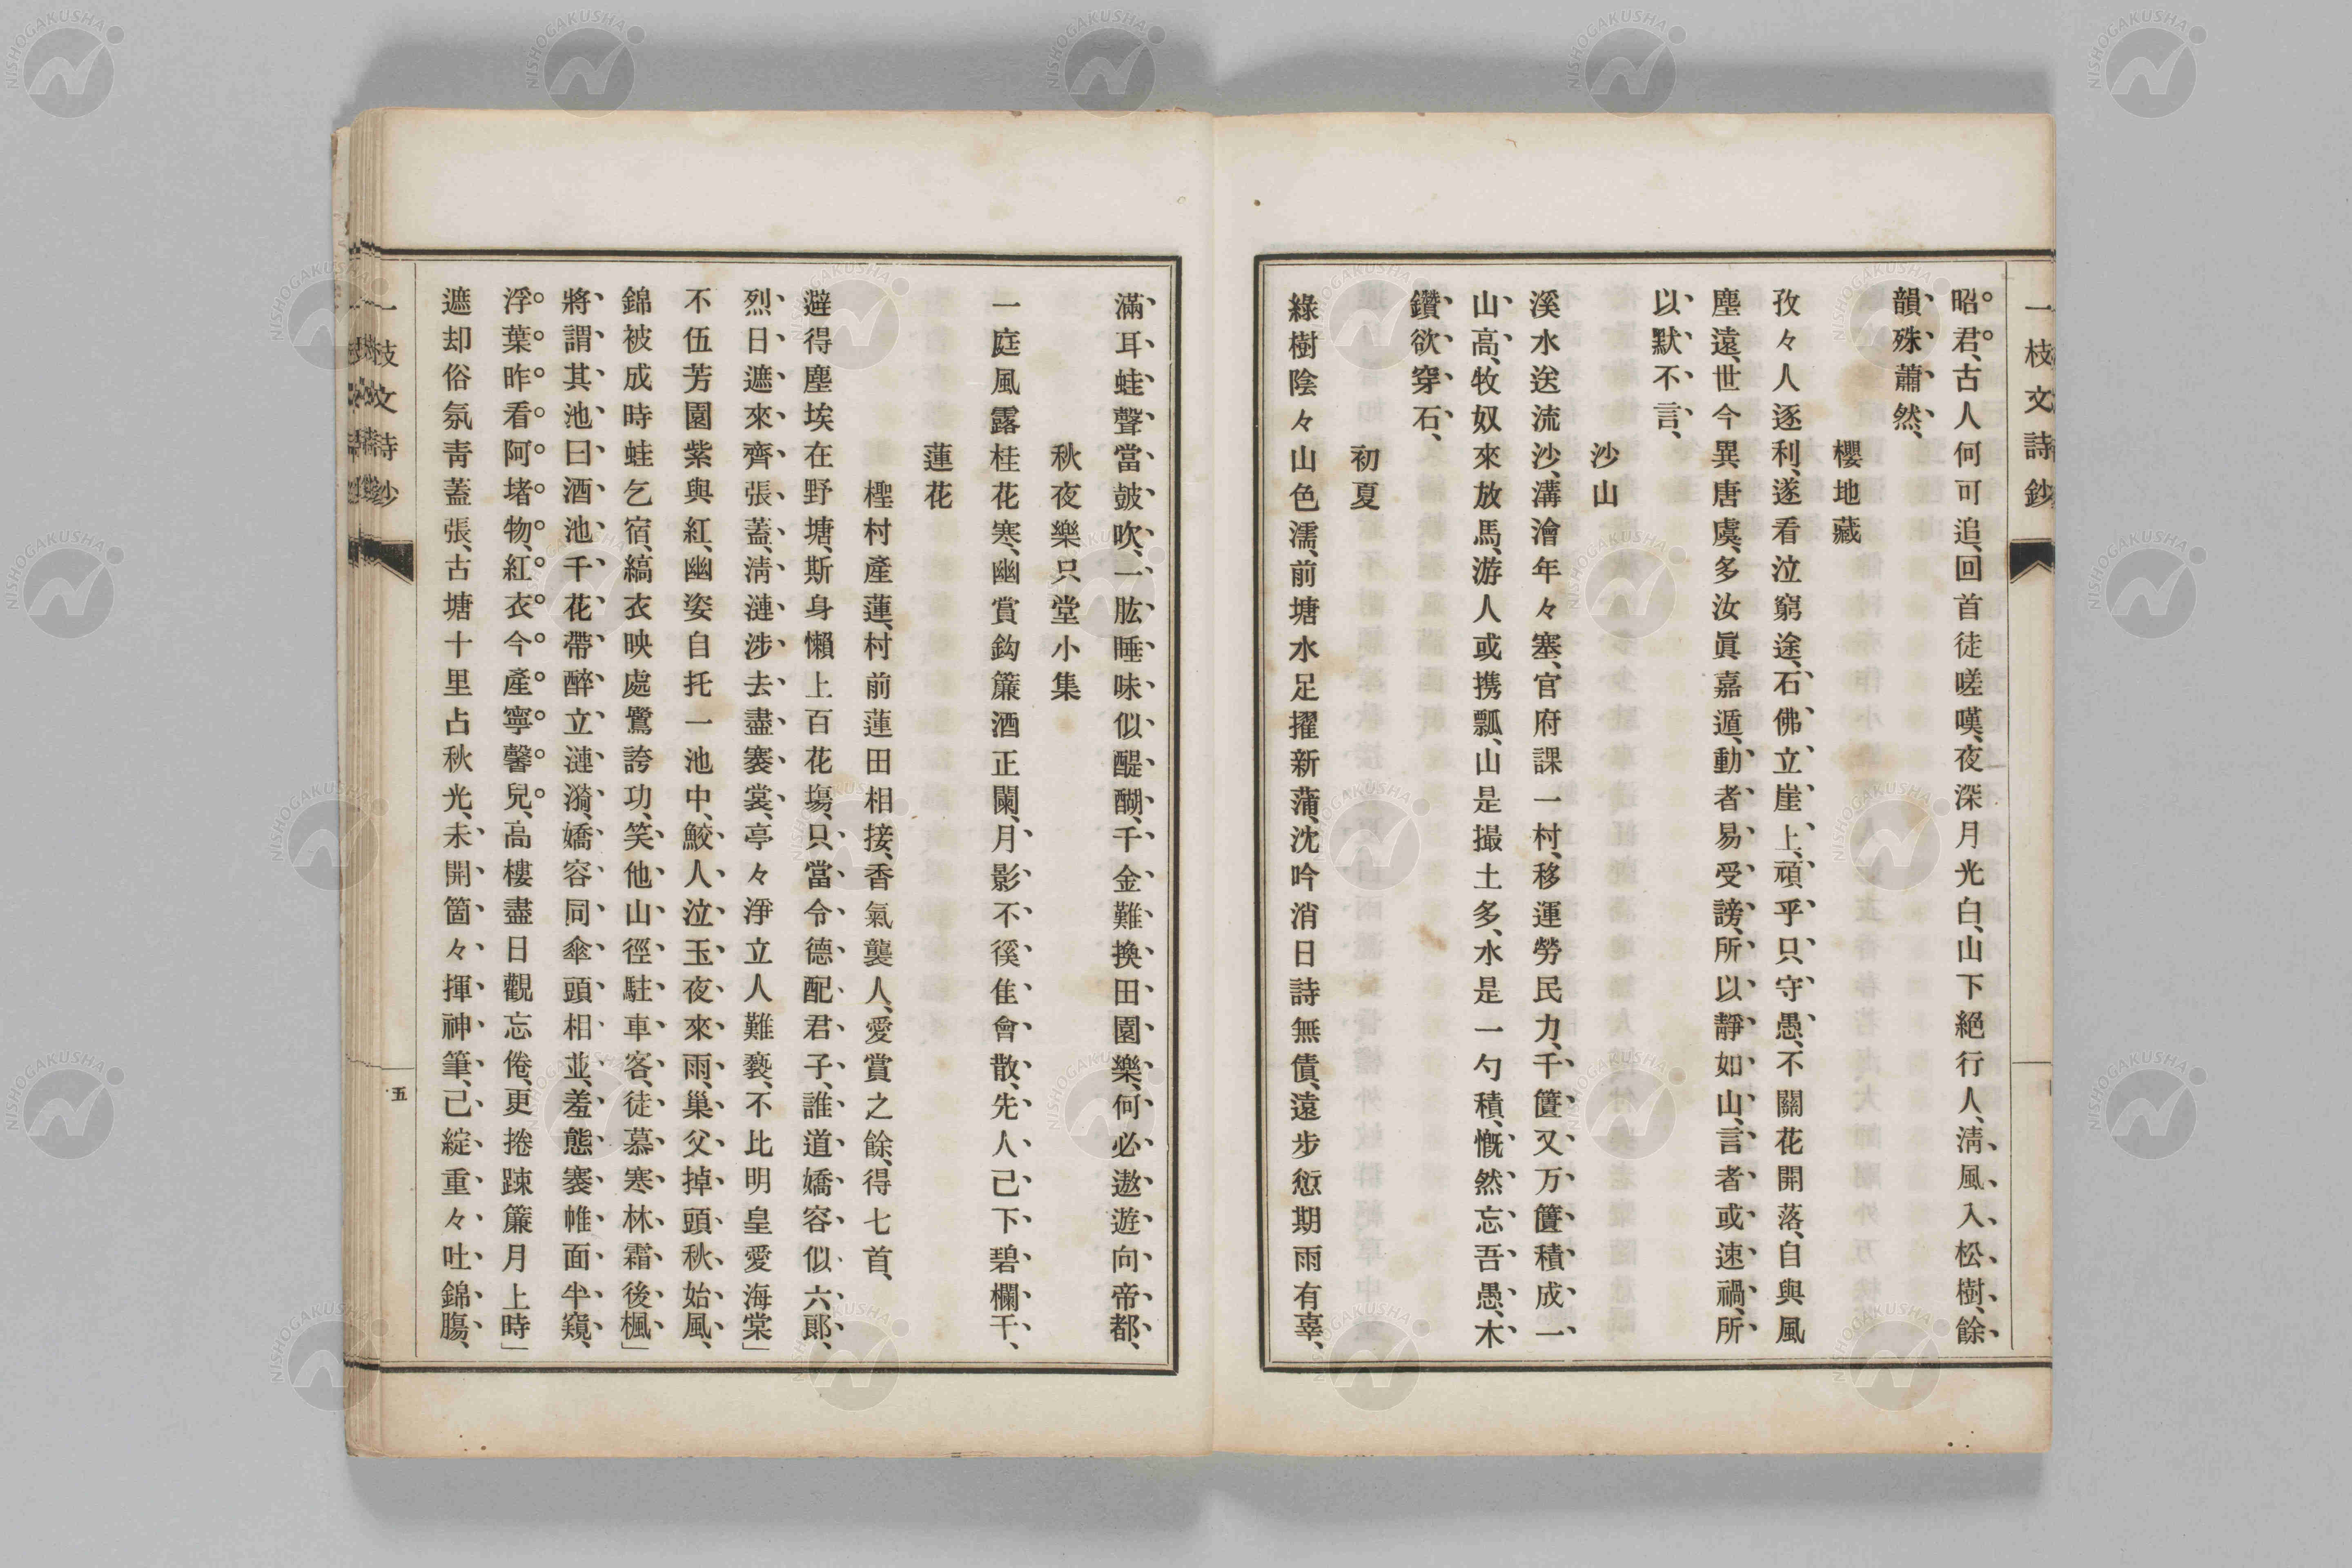 一枝文詩鈔
昭君、古人何可追、回首徒嗟嘆、夜深月光白、山下絕行人、淸風入松樹、餘
韻殊蕭然、
櫻地藏
孜々人逐利、遂看泣窮途、石佛立崖上、頑乎只守愚、不關花開落、自與風
塵遠、世今異唐虞、多汝眞嘉遁、動者易受謗、所以靜如山、言者或速禍、所
以默不言、
沙山
溪水送流沙、溝澮年々塞、官府課一村、移運勞民力、千簣又万簣積成一
山高、牧奴來放馬、游人或携瓢、山是撮土多、水是一勺積、慨然忘吾愚、木
鑽欲穿石、
初夏
綠樹陰々山色濡、前塘水足擢新蒲、沈吟消日詩無債、遠步愆期雨有辜、
滿耳蛙聲當皷吹、一肱睡味似醍醐、千金難換田園樂、何必遨遊向帝都、
秋夜樂只堂小集
一庭風露桂花寒、幽賞鈎簾酒正闌、月影不徯佳會散、先人已下碧欄干、
蓮花
檉村產蓮、村前蓮田相接、香氣襲人、愛賞之餘、得七首、
避得塵埃在野塘、斯身懶上百花塲、只當令德配君子、誰道嬌容似六郞、
烈日遮來齊張蓋、淸漣涉去盡褰裳、亭々淨立人難褻、不比明皇愛海棠」
不伍芳園紫與紅、幽姿自托一池中、鮫人泣玉夜來雨、巢父掉頭秋始風、
錦被成時蛙乞宿、縞衣映處鷺誇功、笑他山徑駐車客、徒慕寒林霜後楓」
將謂其池曰酒池、千花帶醉立漣漪、嬌容同傘頭相並、羞態褰帷面半窺、
浮葉昨看阿堵物、紅衣今產寧馨兒、高樓盡日觀忘倦、更捲踈簾月上時」
遮却俗氛靑蓋張、古塘十里占秋光、未開箇々揮神筆、已綻重々吐錦膓、
五